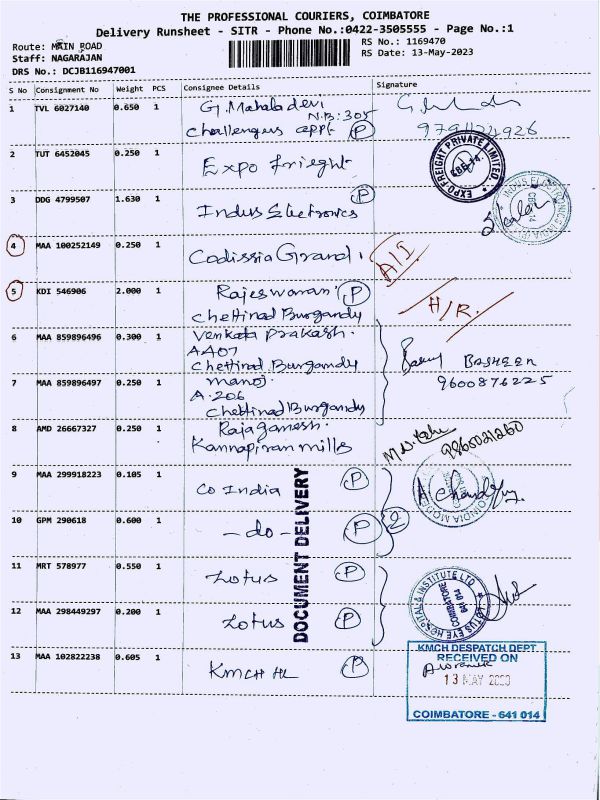 THE PROFESSIONAL COURIERS, COIMBATORE
Delivery Runsheet - SITR - Phone No.:0422-3505555 - Page No.:1
Route: MAIN ROAD
RS No.: 1169470
Staff: NAGARAJAN
RS Date: 13-May-2023
DRS No.: DCJB116947001
S No Consignment No Weight PCS Consignee Details Signature
1 TVL 6027140 0.650 1 G. Mahaladevi
N.B: 305
Challengers appt. P
2 TUT 6452045 0.250 1 Expo frieght
EXPO FREIGHT PRIVATE LIMITED
3 DDG 4799507 1.630 1 Indus Eletronics P
4 MAA 100252149 0.250 1 Codissia Grand. A/I
5 KDI 546906 2.000 1 Rajeswaran. P H/R.
Chettinad Burgandy
6 MAA 859896496 0.300 1 Venkata Prakash.
AA07
Chettinad Burgandy
BASHEER
9600876225
7 MAA 859896497 0.250 1 manoj.
A-206
Chettinad Burgandy
8 AMD 26667327 0.250 1 Raja ganesh.
Kannapiran mills
9865021260
9 MAA 299918223 0.105 1 Co India P
10 GPM 290618 0.600 1 -do- P 2
DOCUMENT DELIVERY
11 MRT 578977 0.550 1 Lotus P
LOTUS EYE HOSPITAL & INSTITUTE LTD
COIMBATORE
641 014
12 MAA 298449297 0.200 1 Lotus P
13 MAA 102822238 0.605 1 KMCH HL P
KMCH DESPATCH DEPT.
RECEIVED ON
13 MAY
COIMBATORE - 641 014